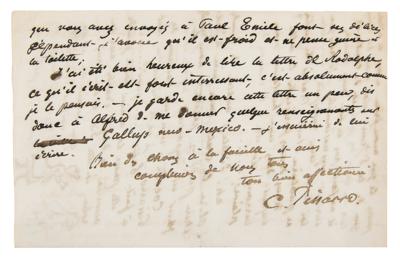 que vous avez envoyés à Paul Emile font ses délices
cependant j'avoue qu'il est froid et ne pense guère à
la toilette.
J'ai été bien heureux de lire la lettre de Rodolphe,
ce qu'il écrit est fort interressant, c'est absolument comme
je le pensais. — je garde encore cette lettre un peu, dis
donc à Alfred de me donner quelque renseignements sur
Gallup new-Mexico. —
écrire.
Bien des choses à la famille et amis
de nous tous
ton bien affectionné
C. Pissarro.